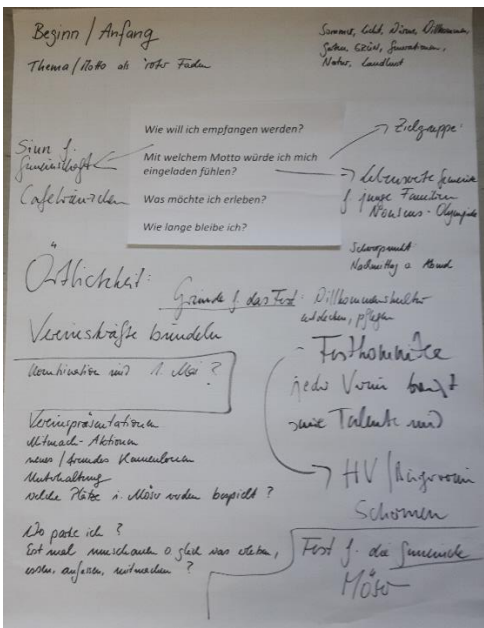 Beginn / Anfang
Thema/Motto als roter Faden
Sommer, Licht, Wärme, Willkommen,
Garten, GRÜN, Generationen,
Natur, Landlust
Wie will ich empfangen werden?
Mit welchem Motto würde ich mich
eingeladen fühlen?
Was möchte ich erleben?
Wie lange bleibe ich?
Sinn f.
Gemeinschaft
Cafékränzchen
Zielgruppe:
Lebenswerte Gemeinde
f. junge Familien
Nonsens-Olympiade
Schwerpunkt
Nachmittag o Abend
Örtlichkeit:
Gründe f. das Fest: Willkommenskultur
entdecken, pflegen
Vereinskräfte bündeln
Kombination mit 1. Mai?
- Festkommitee
jeder Verein bringt
seine Talente mit
Vereinspräsentationen
Mitmach-Aktionen
neues / fremdes Kennenlernen
Unterhaltung
welche Plätze i. Möser werden bespielt?
HV / Bürgerverein
Schermen
Wo parke ich?
Erst mal umschauen o gleich was erleben,
essen, anfassen, mitmachen?
Fest f. die Gemeinde
Möser